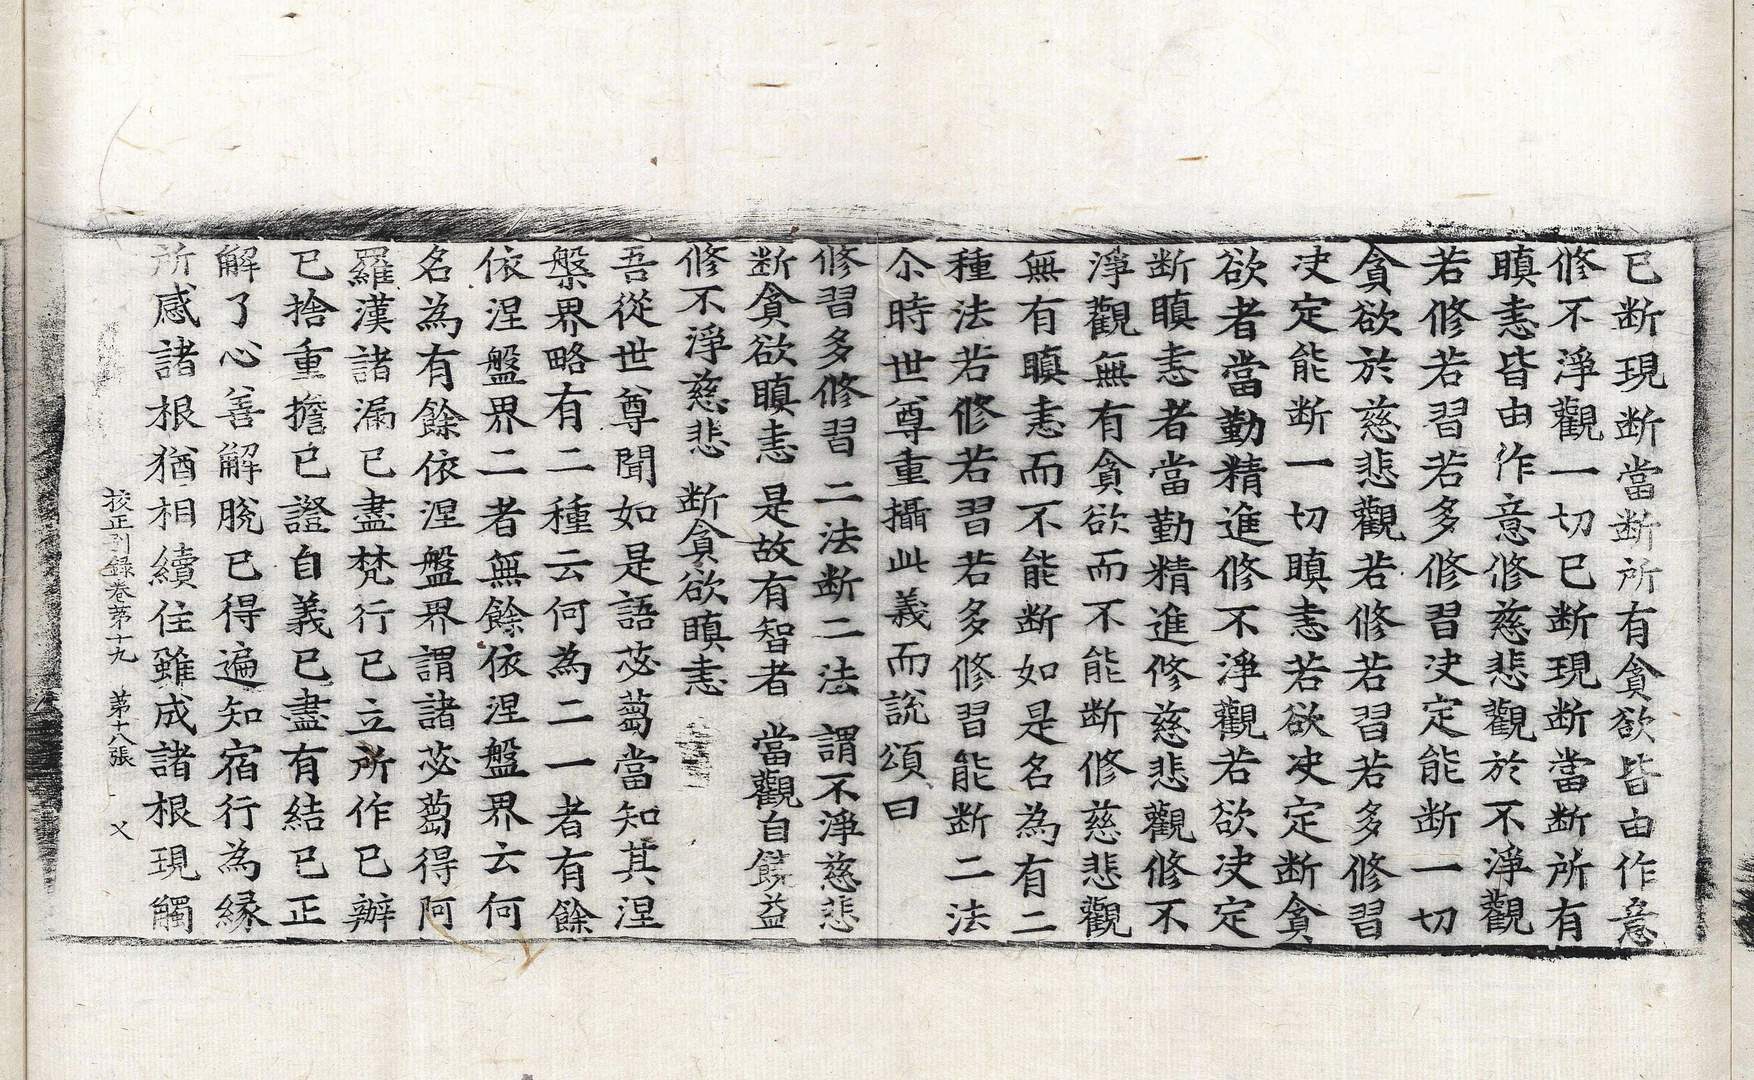 已断現断當断所有貪欲皆由作意
修不淨觀一切已断現断當断所有
瞋恚皆由作意修慈悲觀於不淨觀
若修若習若多修習决定能断一切
貪欲於慈悲觀若修若習若多修習
决定能断一切瞋恚若欲决定断貪
欲者當勤精進修不淨觀若欲决定
断瞋恚者當勤精進修慈悲觀修不
淨觀無有貪欲而不能断修慈悲觀
無有瞋恚而不能断如是名為有二
種法若修若習若多修習能断二法
尒時世尊重攝此義而說頌曰
修習多修習 二法断二法 謂不淨慈悲
断貪欲瞋恚 是故有智者 當觀自饒益
修不淨慈悲 断貪欲瞋恚
吾從世尊聞如是語苾蒭當知其涅
槃界略有二種云何為二一者有餘
依涅盤界二者無餘依涅盤界云何
名為有餘依涅盤界謂諸苾蒭得阿
羅漢諸漏已盡梵行已立所作已辦
已捨重擔已證自義已盡有結已正
解了心善解脫已得遍知宿行為緣
所感諸根猶相續住雖成諸根現觸
校正別録卷第十九 第十八張 乂